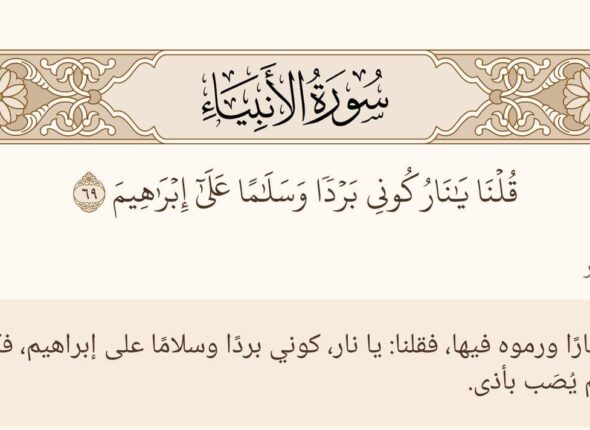 سُورَةُ الأَنبِيَاءِ
قُلْنَا يَـٰنَارُ كُونِي بَرْدًا وَسَلَـٰمًا عَلَىٰٓ إِبْرَٰهِيمَ ٦٩
ورموه فيها، فقلنا: يا نار، كوني بردًا وسلامًا على إبراهيم،
يُصَب بأذى.